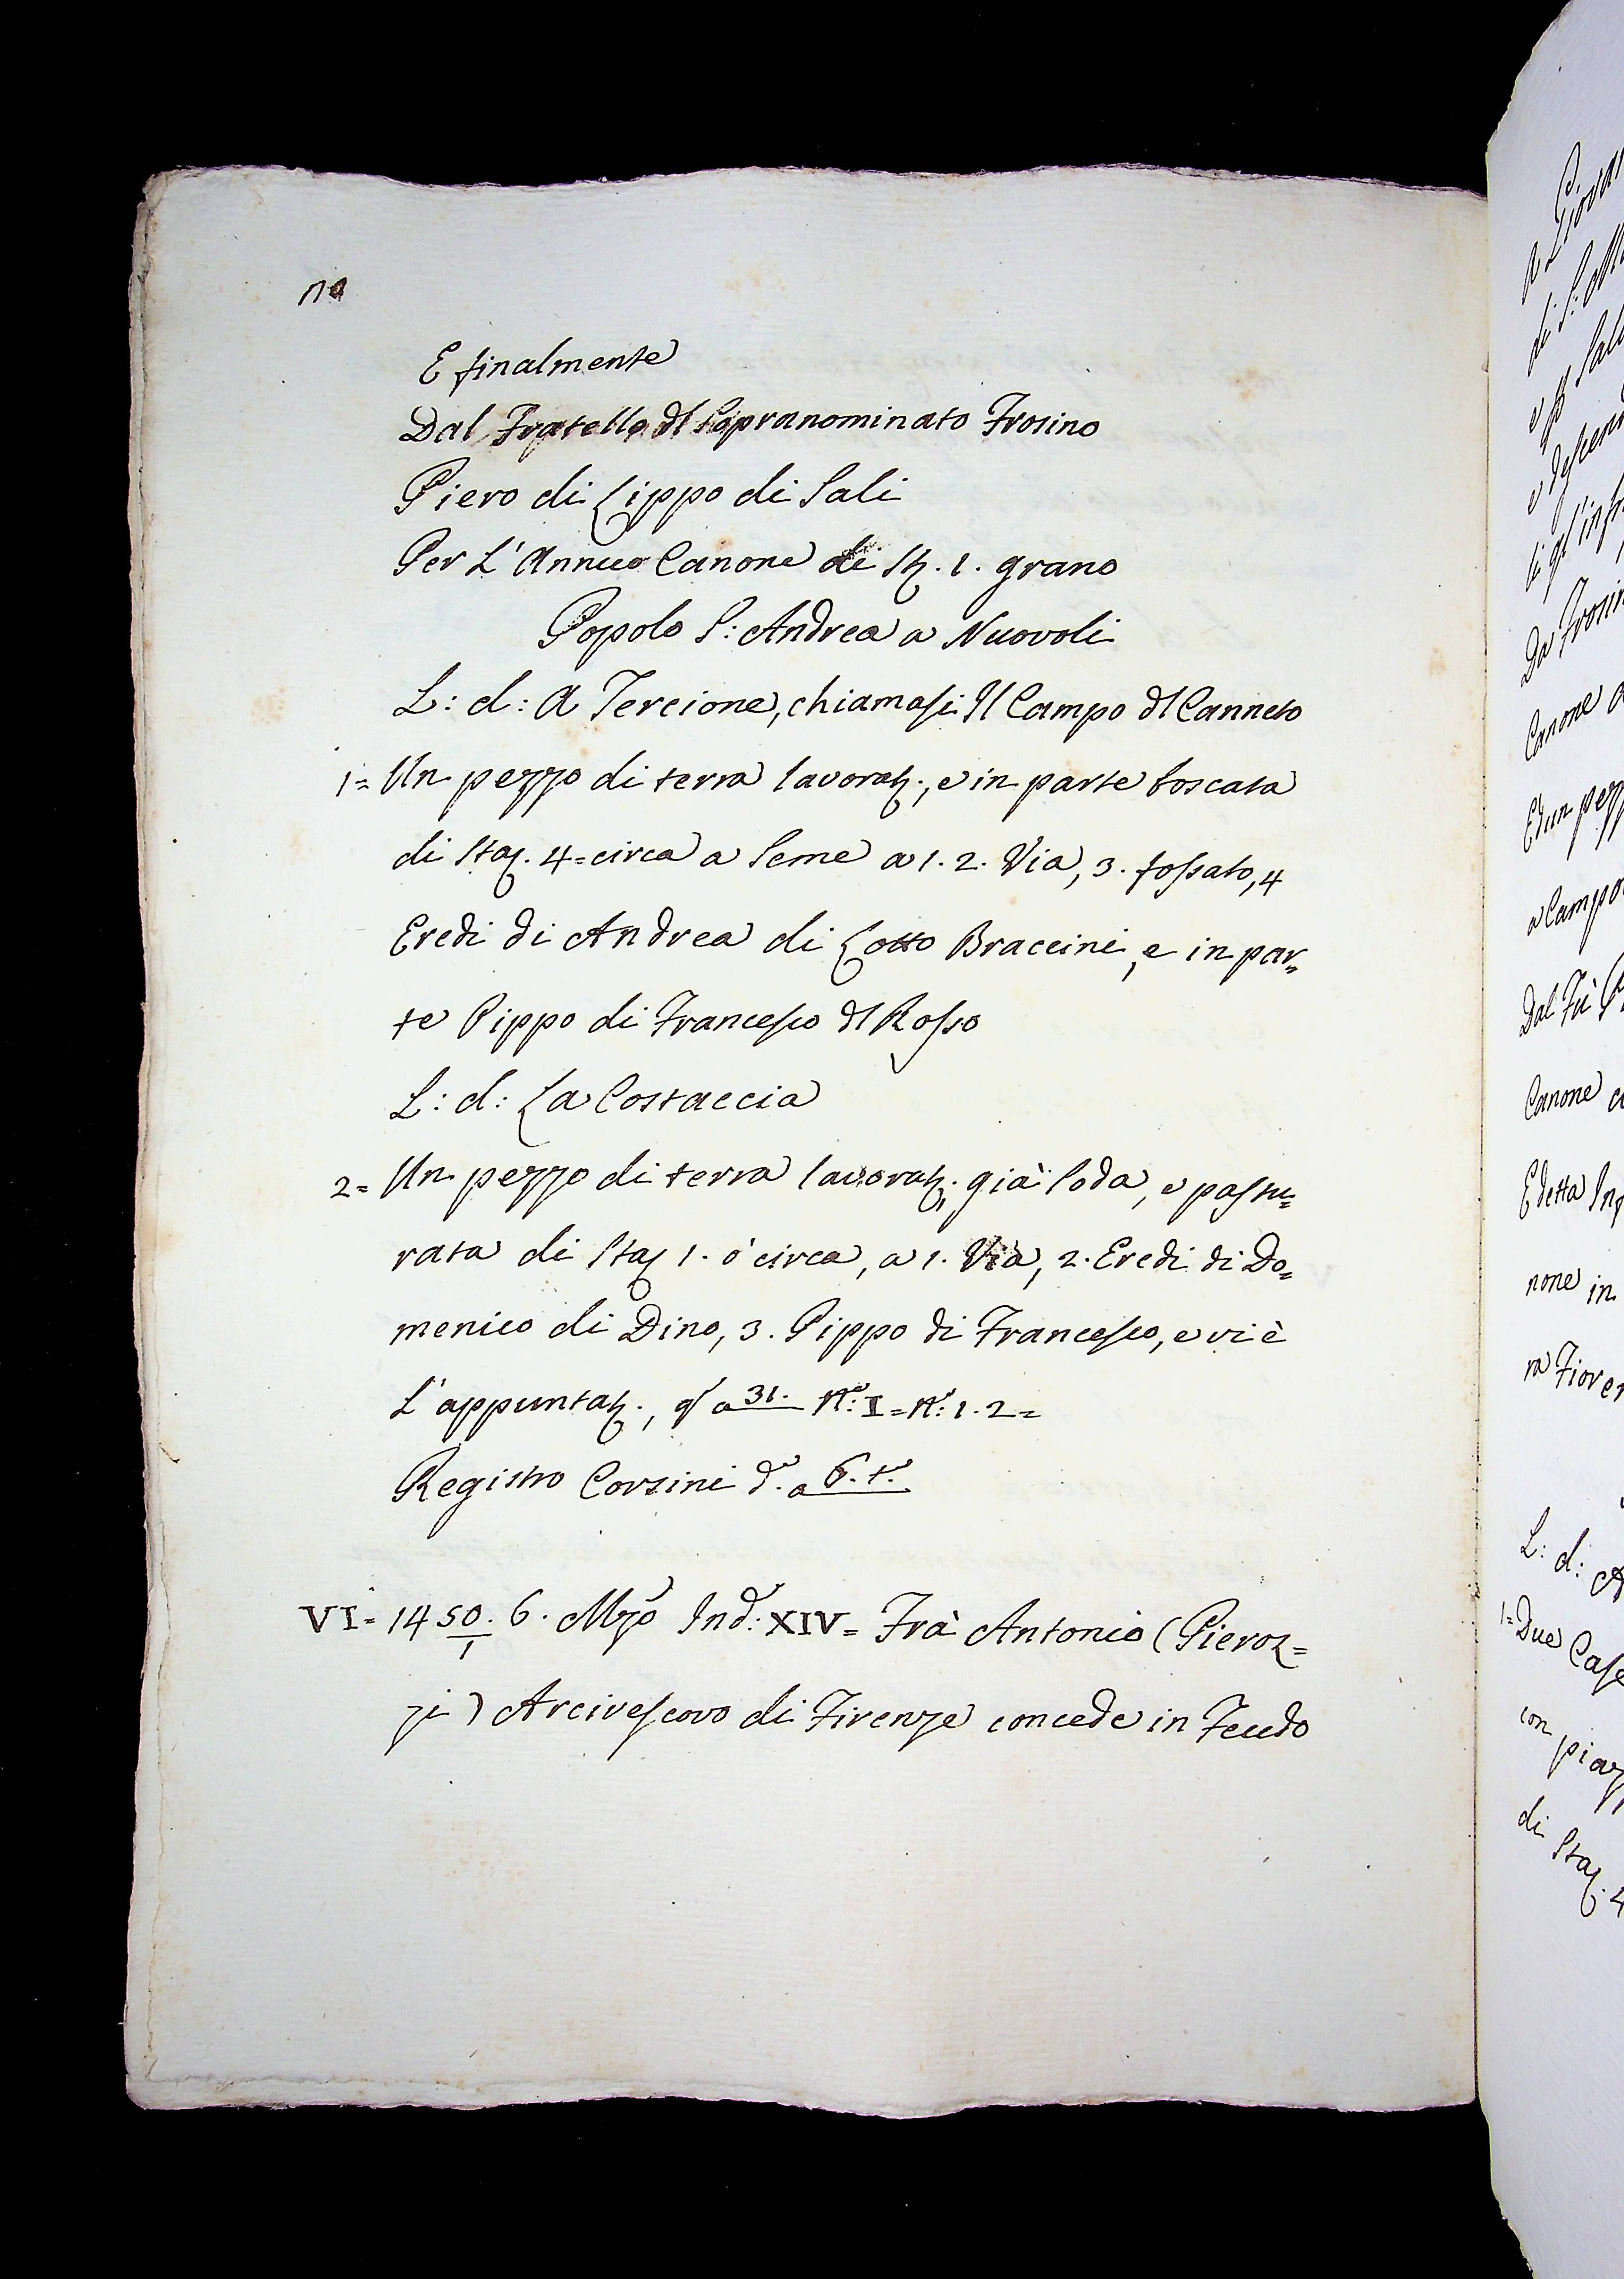 E finalmente
Dal Fratello dl Sopranominato Frosino
Piero di Lippo di Sali
Per L'Annuo Canone di St. 1. grano
Popolo S: Andrea a Nuovoli
L: d: A Tercione, chiamasi Il Campo dl Canneto
1= Un pezzo di terra lavorat., e in parte boscata
di Staj. 4= circa a Seme a 1. 2. Via, 3. fossato, 4
Eredi di Andrea di Lotto Braccini, e in par=
te Pippo di Francesco dl Rosso
L: d: La Costaccia
2= Un pezzo di terra lavorat. già soda, e pastu=
rata di Staj 1. ò circa, a 1. Via, 2. Eredi di Do=
menico di Dino, 3. Pippo di Francesco, e vi è
L'appuntat., a 31. N.º: I= N.º: 1. 2=
Registro Corsini d.º a 6. t.º
VI= 1450./1 6. Mzo Ind.: XIV= Frà Antonio (Pieroz=
zi) Arcivescovo di Firenze concede in Feudo
L: d: A
1= Due Case
con piazz
di Staj. 4